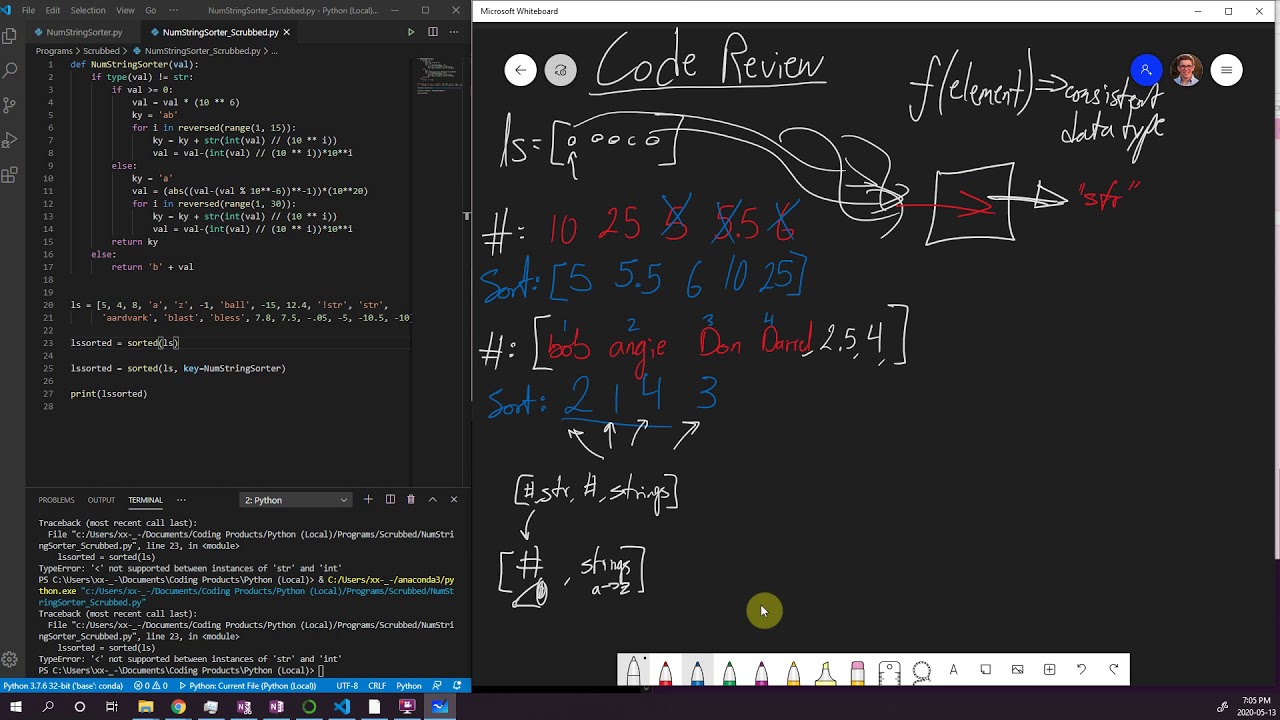 File Edit Selection View Go ··· NumStringSorter_Scrubbed.py - Python (Local)...
NumStringSorter.py NumStringSorter_Scrubbed.py
Programs > Scrubbed > NumStringSorter_Scrubbed.py > ...
1 def NumStringSorter(val):
2 if type(val) != str:
3 if val >= 0:
4 val = val * (10 ** 6)
5 ky = 'ab'
6 for i in reversed(range(1, 15)):
7 ky = ky + str(int(val) // (10 ** i))
8 val = val-(int(val) // (10 ** i))*10**i
9 else:
10 ky = 'a'
11 val = (abs((val-(val % 10**-6))**-1))*(10**20)
12 for i in reversed(range(1, 30)):
13 ky = ky + str(int(val) // (10 ** i))
14 val = val-(int(val) // (10 ** i))*10**i
15 return ky
16 else:
17 return 'b' + val
18
19
20 ls = [5, 4, 8, 'a', 'z', -1, 'ball', -15, 12.4, '!str', 'str',
21 'aardvark', 'blast', 'bless', 7.8, 7.5, -.05, -5, -10.5, -10
22
23 lssorted = sorted(ls)
24
25 lssorted = sorted(ls, key=NumStringSorter)
26
27 print(lssorted)
28
PROBLEMS OUTPUT TERMINAL ··· 2: Python
Traceback (most recent call last):
File "c:/Users/xx-_-/Documents/Coding Products/Python (Local)/Programs/Scrubbed/NumStri
ngSorter_Scrubbed.py", line 23, in <module>
lssorted = sorted(ls)
TypeError: '<' not supported between instances of 'str' and 'int'
PS C:\Users\xx-_-\Documents\Coding Products\Python (Local)> & C:/Users/xx-_-/anaconda3/py
thon.exe "c:/Users/xx-_-/Documents/Coding Products/Python (Local)/Programs/Scrubbed/NumSt
ringSorter_Scrubbed.py"
Traceback (most recent call last):
File "c:/Users/xx-_-/Documents/Coding Products/Python (Local)/Programs/Scrubbed/NumStri
ngSorter_Scrubbed.py", line 23, in <module>
lssorted = sorted(ls)
TypeError: '<' not supported between instances of 'str' and 'int'
PS C:\Users\xx-_-\Documents\Coding Products\Python (Local)>
Python 3.7.6 32-bit ('base': conda) 0 0 Python: Current File (Python (Local)) UTF-8 CRLF Python
Microsoft Whiteboard
Code Review
f(element) → consistent
data type
ls = [o o o c o]
"str"
#: 10 25 5 5.5 6
Sort: [5 5.5 6 10 25]
1 2 3 4
#: [bob angie Don Darrel, 2.5, 4, ]
Sort: 2 1 4 3
[#,str, #, strings]
[#, strings]
a→z
A
7:05 PM
2020-05-13